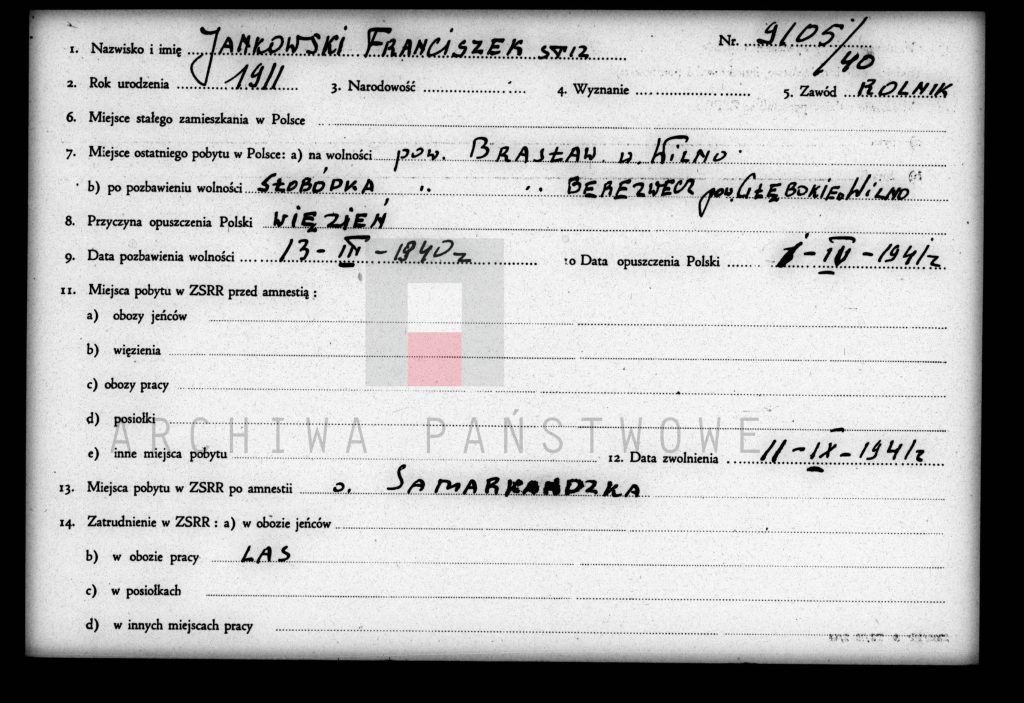 1. Nazwisko i imię JANKOWSKI FRANCISZEK Nr. 9105/
/40
2. Rok urodzenia 1911 3. Narodowość 4. Wyznanie 5. Zawód ROLNIK
6. Miejsce stałego zamieszkania w Polsce
7. Miejsce ostatniego pobytu w Polsce: a) na wolności pow. BRASŁAW w. WILNO
b) po pozbawieniu wolności SŁOBÓDKA " " BEREZWECZ pow. GŁĘBOKIE w. WILNO
8. Przyczyna opuszczenia Polski WIĘZIEŃ
9. Data pozbawienia wolności 13-III-1940 r 10 Data opuszczenia Polski 1-IV-1941 r
11. Miejsca pobytu w ZSRR przed amnestią:
a) obozy jeńców
b) więzienia
c) obozy pracy
d) posiołki
ARCHIWA PAŃSTWOWE
e) inne miejsca pobytu 12. Data zwolnienia 11-IX-1941 r
13. Miejsca pobytu w ZSRR po amnestii o. SAMARKANDZKA
14. Zatrudnienie w ZSRR: a) w obozie jeńców
b) w obozie pracy LAS
c) w posiołkach
d) w innych miejscach pracy